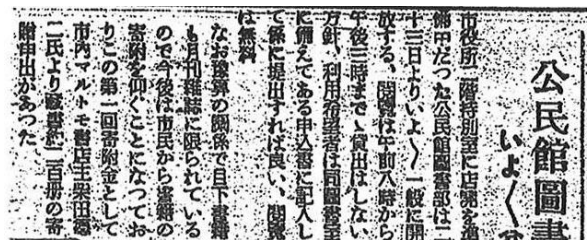 公民館圖書
いよ〱
市役所二階特別室に店開を準
備中だつた公民館圖書部は二
十三日よりいよ〱一般に開
放する、閲覧は午前八時から
午後三時まで、貸出はしない
方針、利用希望者は同圖書室
に備えてある申込書に記入し
て係に提出すれば良い、閲覧
は無料
なお豫算の関係で目下書籍
も月刊雑誌に限られている
ので今後は市民から書籍の
寄附を仰ぐことになつてお
りこの第一回寄附金として
市内マルトモ書店主柴田
二氏より藏書約二百册の寄
贈申出があつた、